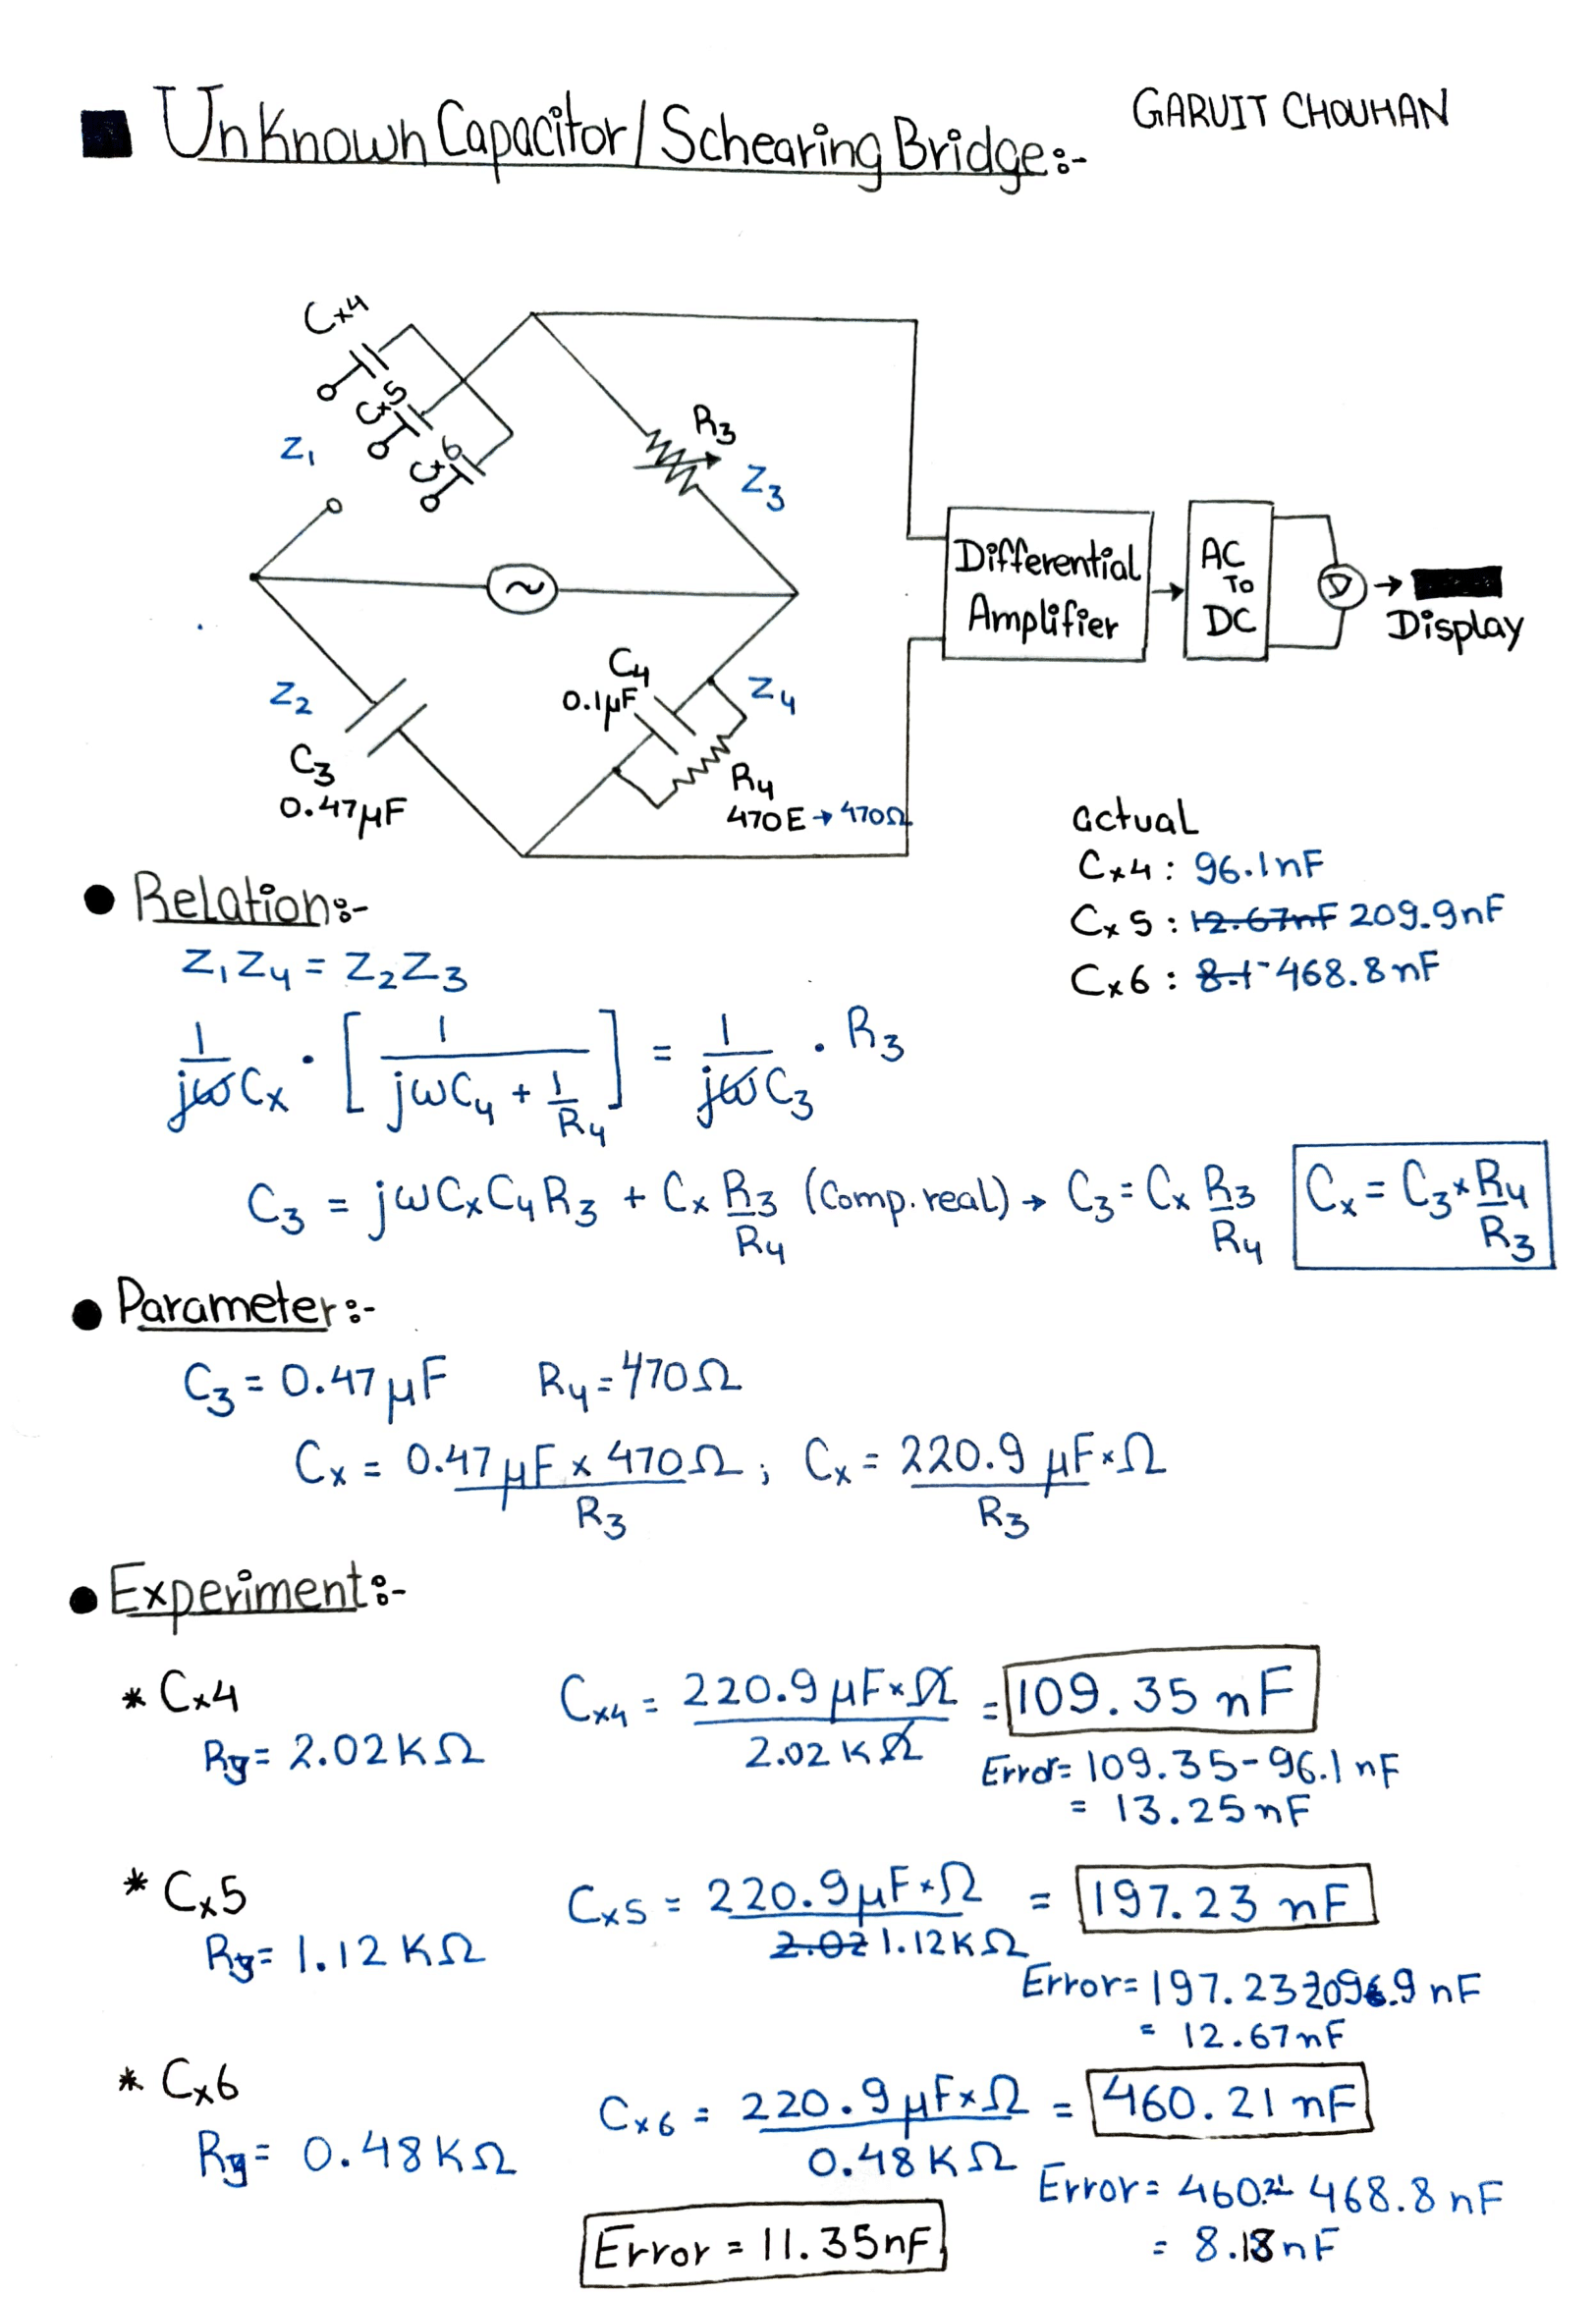 GARUIT CHOUHAN
UnKnown Capacitor / Schearing Bridge:-
Cx4
Cx5
Cx6
Z1
R3
Z3
Differential Amplifier
AC To DC
D
Display
~
Z2
C3
0.47μF
C4
0.1μF
Z4
R4
470E → 470Ω
actual
Cx4 : 96.1nF
Cx5 : 12.67nF 209.9nF
Cx6 : 8.1 468.8nF
Relation:-
Z1 Z4 = Z2 Z3
1/jωCx · [1/(jωC4 + 1/R4)] = 1/jωC3 · R3
C3 = jωCxC4R3 + Cx R3/R4 (Comp. real) → C3 = Cx R3/R4 Cx = C3 × R4/R3
Parameter:-
C3 = 0.47μF R4 = 470Ω
Cx = 0.47μF × 470Ω/R3 ; Cx = 220.9 μF×Ω/R3
Experiment:-
* Cx4
R3 = 2.02KΩ
Cx4 = 220.9μF×Ω/2.02KΩ = 109.35 nF
Error = 109.35 - 96.1 nF
= 13.25nF
* Cx5
R3 = 1.12KΩ
Cx5 = 220.9μF×Ω/2.02 1.12KΩ = 197.23 nF
Error = 197.23 209.9 nF
= 12.67nF
* Cx6
R3 = 0.48KΩ
Cx6 = 220.9μF×Ω/0.48KΩ = 460.21 nF
Error = 460.21 - 468.8 nF
= 8.18nF
Error = 11.35nF